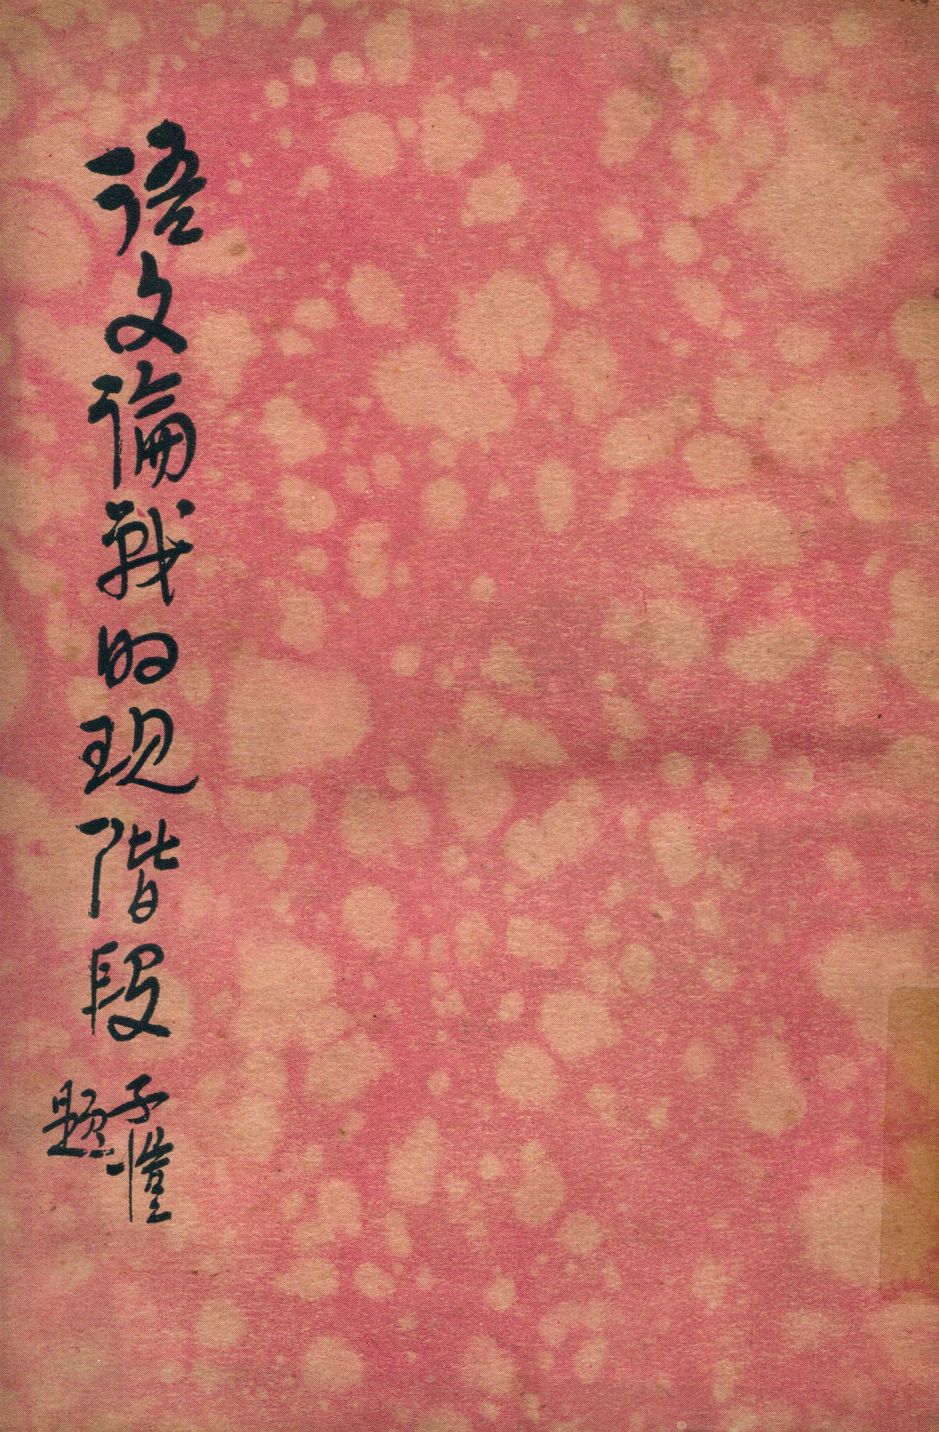 語文論戰的現階段
子愷
題